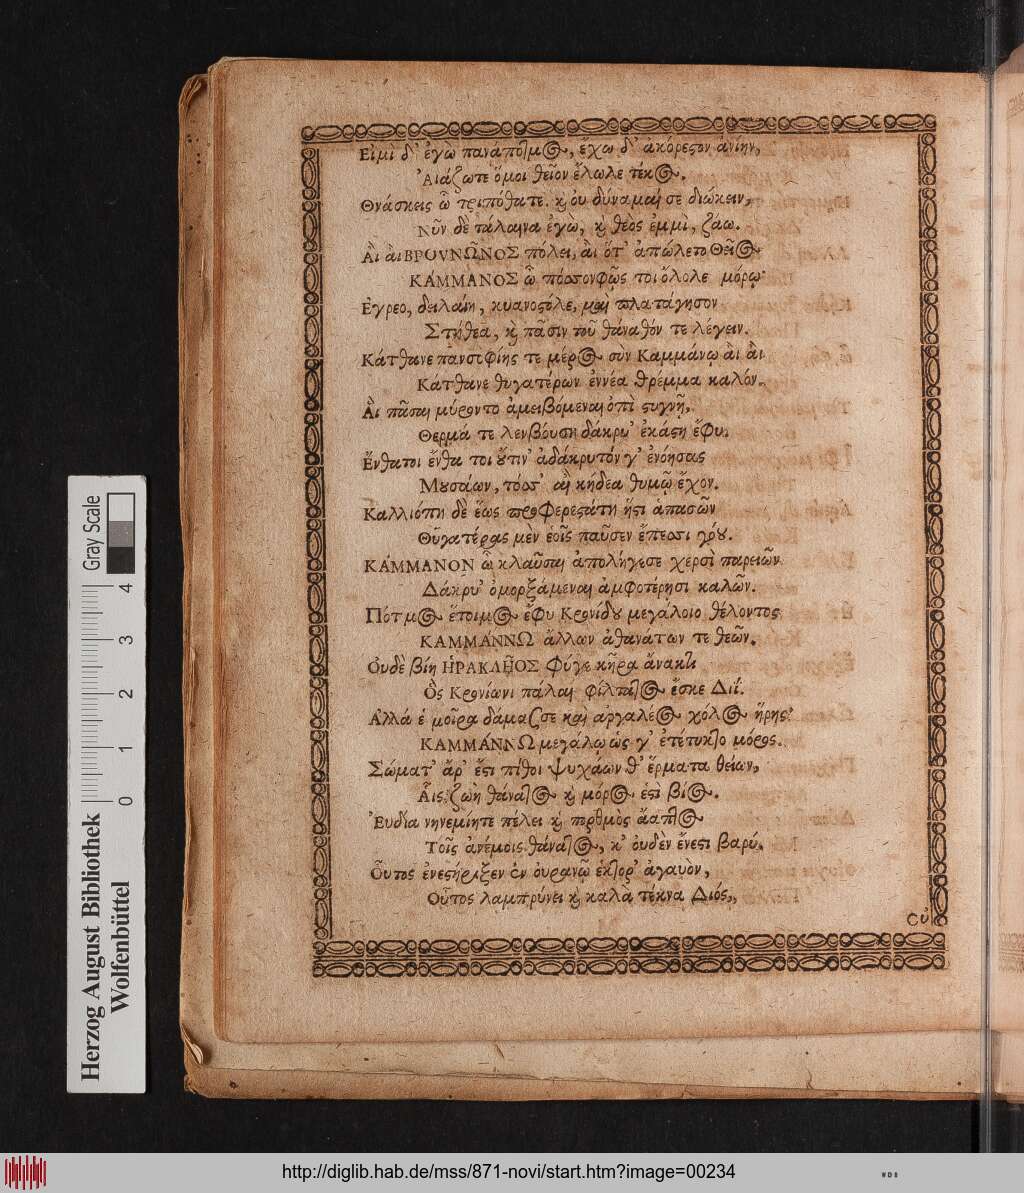 Εἰμὶ δ' ἐγὼ πανάποτμος, ἔχω δ' ἀκόρεστον ἀνίην,
Ἀιάζωτε ὅμοι θεῖον ἔλωλε τέκος.
Θνάσκεις ὦ τριπόθατε. καὶ οὐ δύναμαί σε διώκειν,
Νῦν δὲ τάλαινα ἐγὼ, καὶ θεὸς ἐμμὶ, ζάω.
Αἲ αἲ ΒΡΟΥΝΩ͂ΝΟΣ πόλει, αἲ ὅτ' ἀπώλετο Θεῖος
ΚΑΜΜΑΝΟΣ ὦ πόσσον φῶς τοι ὄλολε μόρῳ
Ἔγρεο, δειλαίη, κυανοστόλε, καὶ πλατάγησον
Στήθεα, καὶ πᾶσιν τοῦ θάναθόν τε λέγειν.
Κάτθανε πανσιφίης τε μέρος σὺν Καμμάνῳ αἲ αἲ
Κάτθανε θυγατέρων ἐννέα θρέμμα καλόν.
Αἲ πᾶσαι μύροντο ἀμειβόμεναι ὀπὶ στυγνῇ,
Θερμά τε λενβόυση δάκρυ' ἑκάστη ἔφυ.
Ἔνθα τοι ἔνθα τοι οὔτιν' ἀδάκρυτόν γ' ἐνόησας
Μουσάων, τόσσ' αἳ κήδεα θυμῷ ἔχον.
Καλλιόπη δὲ ἕως προφερεστάτη ἥστι ἁπασῶν
Θυγατέρας μὲν ἑοῖς παῦσεν ἔπεσσι γόου.
ΚΑΜΜΑΝΟΝ ὦ κλαῦσαι ἀπολήγεσε χερσὶ παρειῶν
Δάκρυ' ὀμορξάμεναι ἀμφοτέρησι καλῶν.
Πότμος ἕτοιμος ἔφυ Κρονίδου μεγάλοιο θέλοντος
ΚΑΜΜΑΝΝΩ ἄλλων ἀθανάτων τε θεῶν.
Οὐδὲ βίη ἩΡΑΚΛΗ͂ΟΣ φύγε κῆρα ἄνακτι
Ὃς Κρονίωνι πάλαι φίλτατος ἔσκε Διΐ.
Ἀλλά ἑ μοῖρα δάμασσε καὶ ἀργαλέος χόλος ἥρης
ΚΑΜΜΑΝΝΩ μεγάλῳ ὡς γ' ἐτέτυκτο μόρος.
Σώματ' ἄρ' ἐστι πίθοι ψυχάων θ' ἕρματα θείων,
Αἷς ζωὴ θάνατος καὶ μόρος ἐστὶ βίος.
Ἐυδία νηνεμίητε πέλει καὶ πορθμὸς ἄαπτος
Τοῖς ἀνέμοις θάνατος, κ' οὐδὲν ἔνεστι βαρύ.
Οὗτος ἐνεστήριξεν ἐν οὐρανῷ ἕκτορ' ἀγαυὸν,
Οὗτος λαμπρύνει καὶ καλὰ τέκνα Διός,
Σὺ
Herzog August Bibliothek
Wolfenbüttel
Gray Scale
0 1 2 3 4
http://diglib.hab.de/mss/871-novi/start.htm?image=00234
WDB